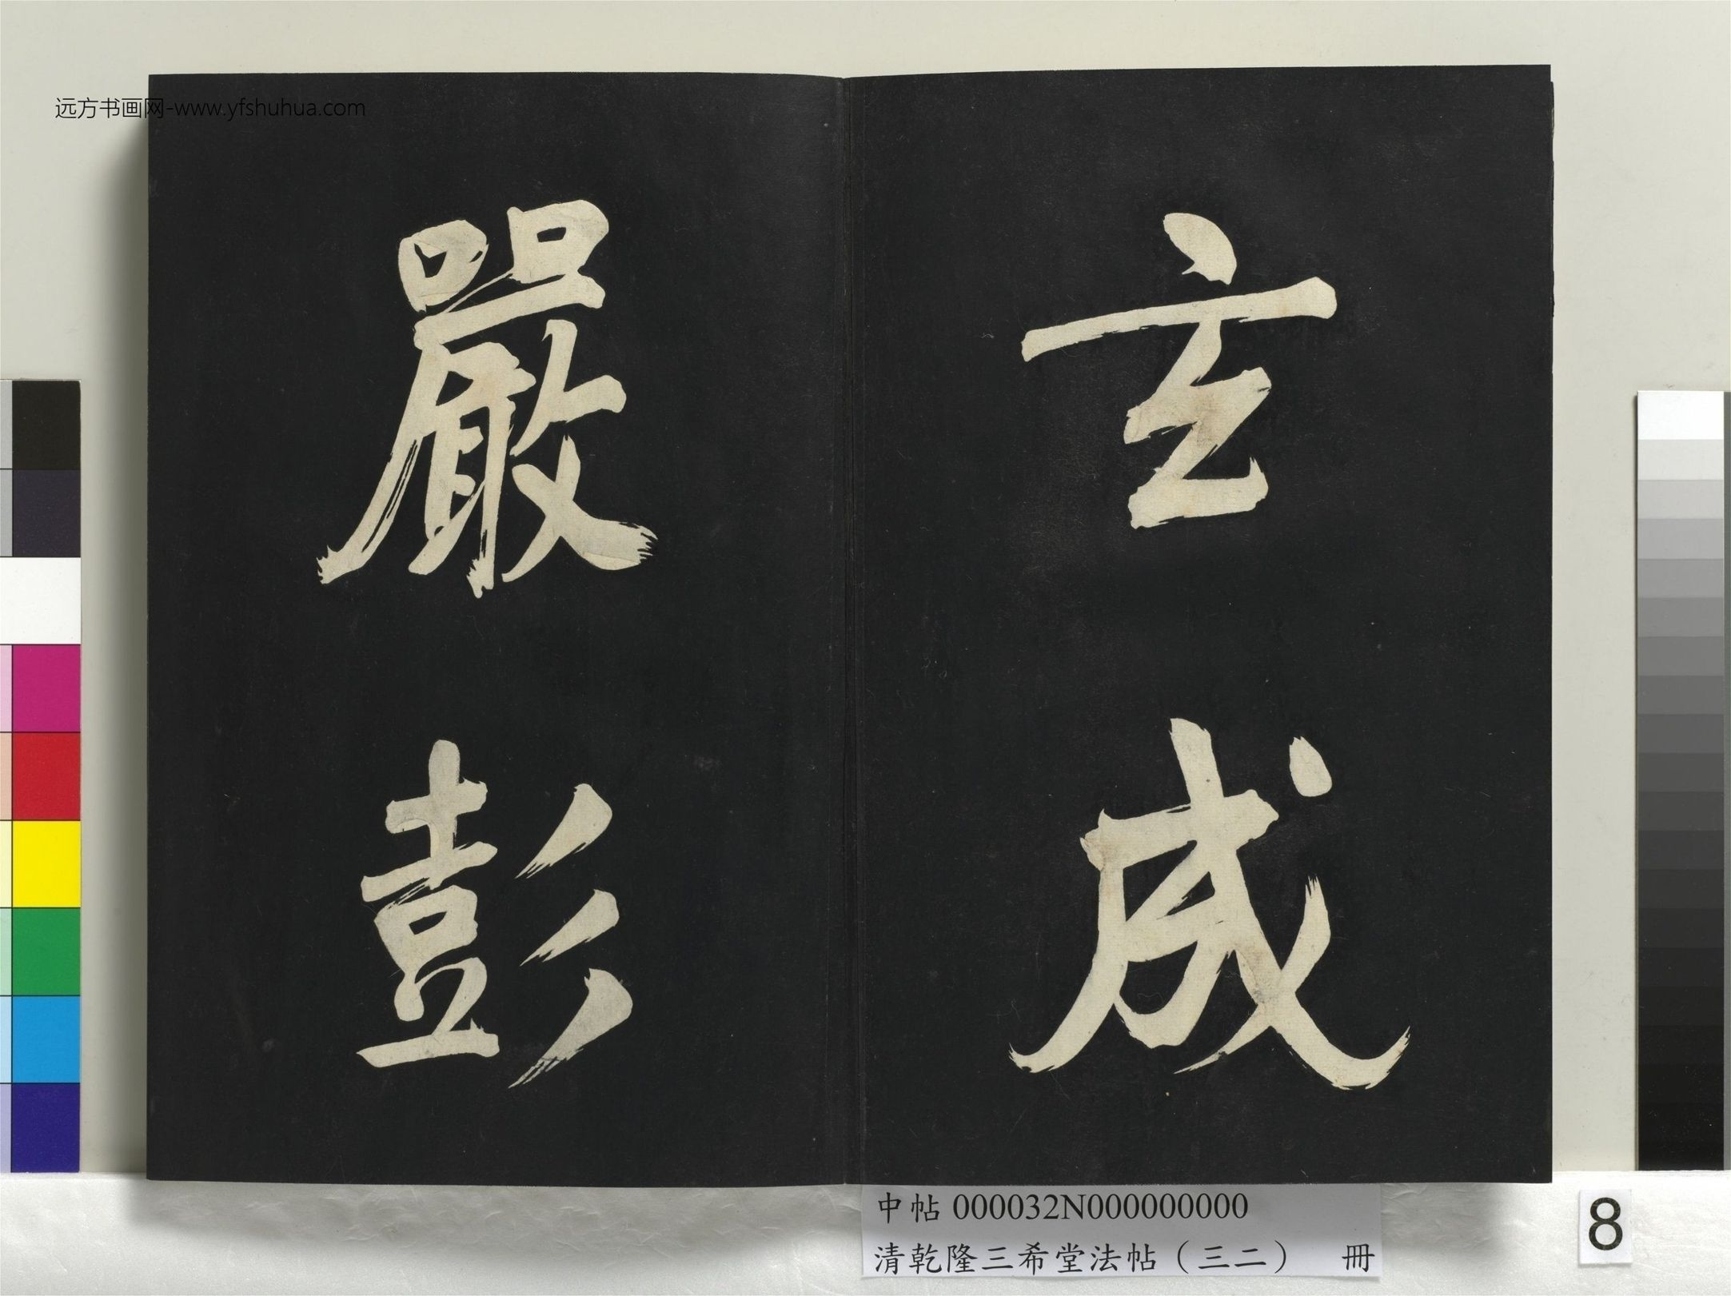 远方书画网-www.yfshuhua.com
玄成
嚴彭
中帖 000032N000000000
清乾隆三希堂法帖（三二） 冊
8